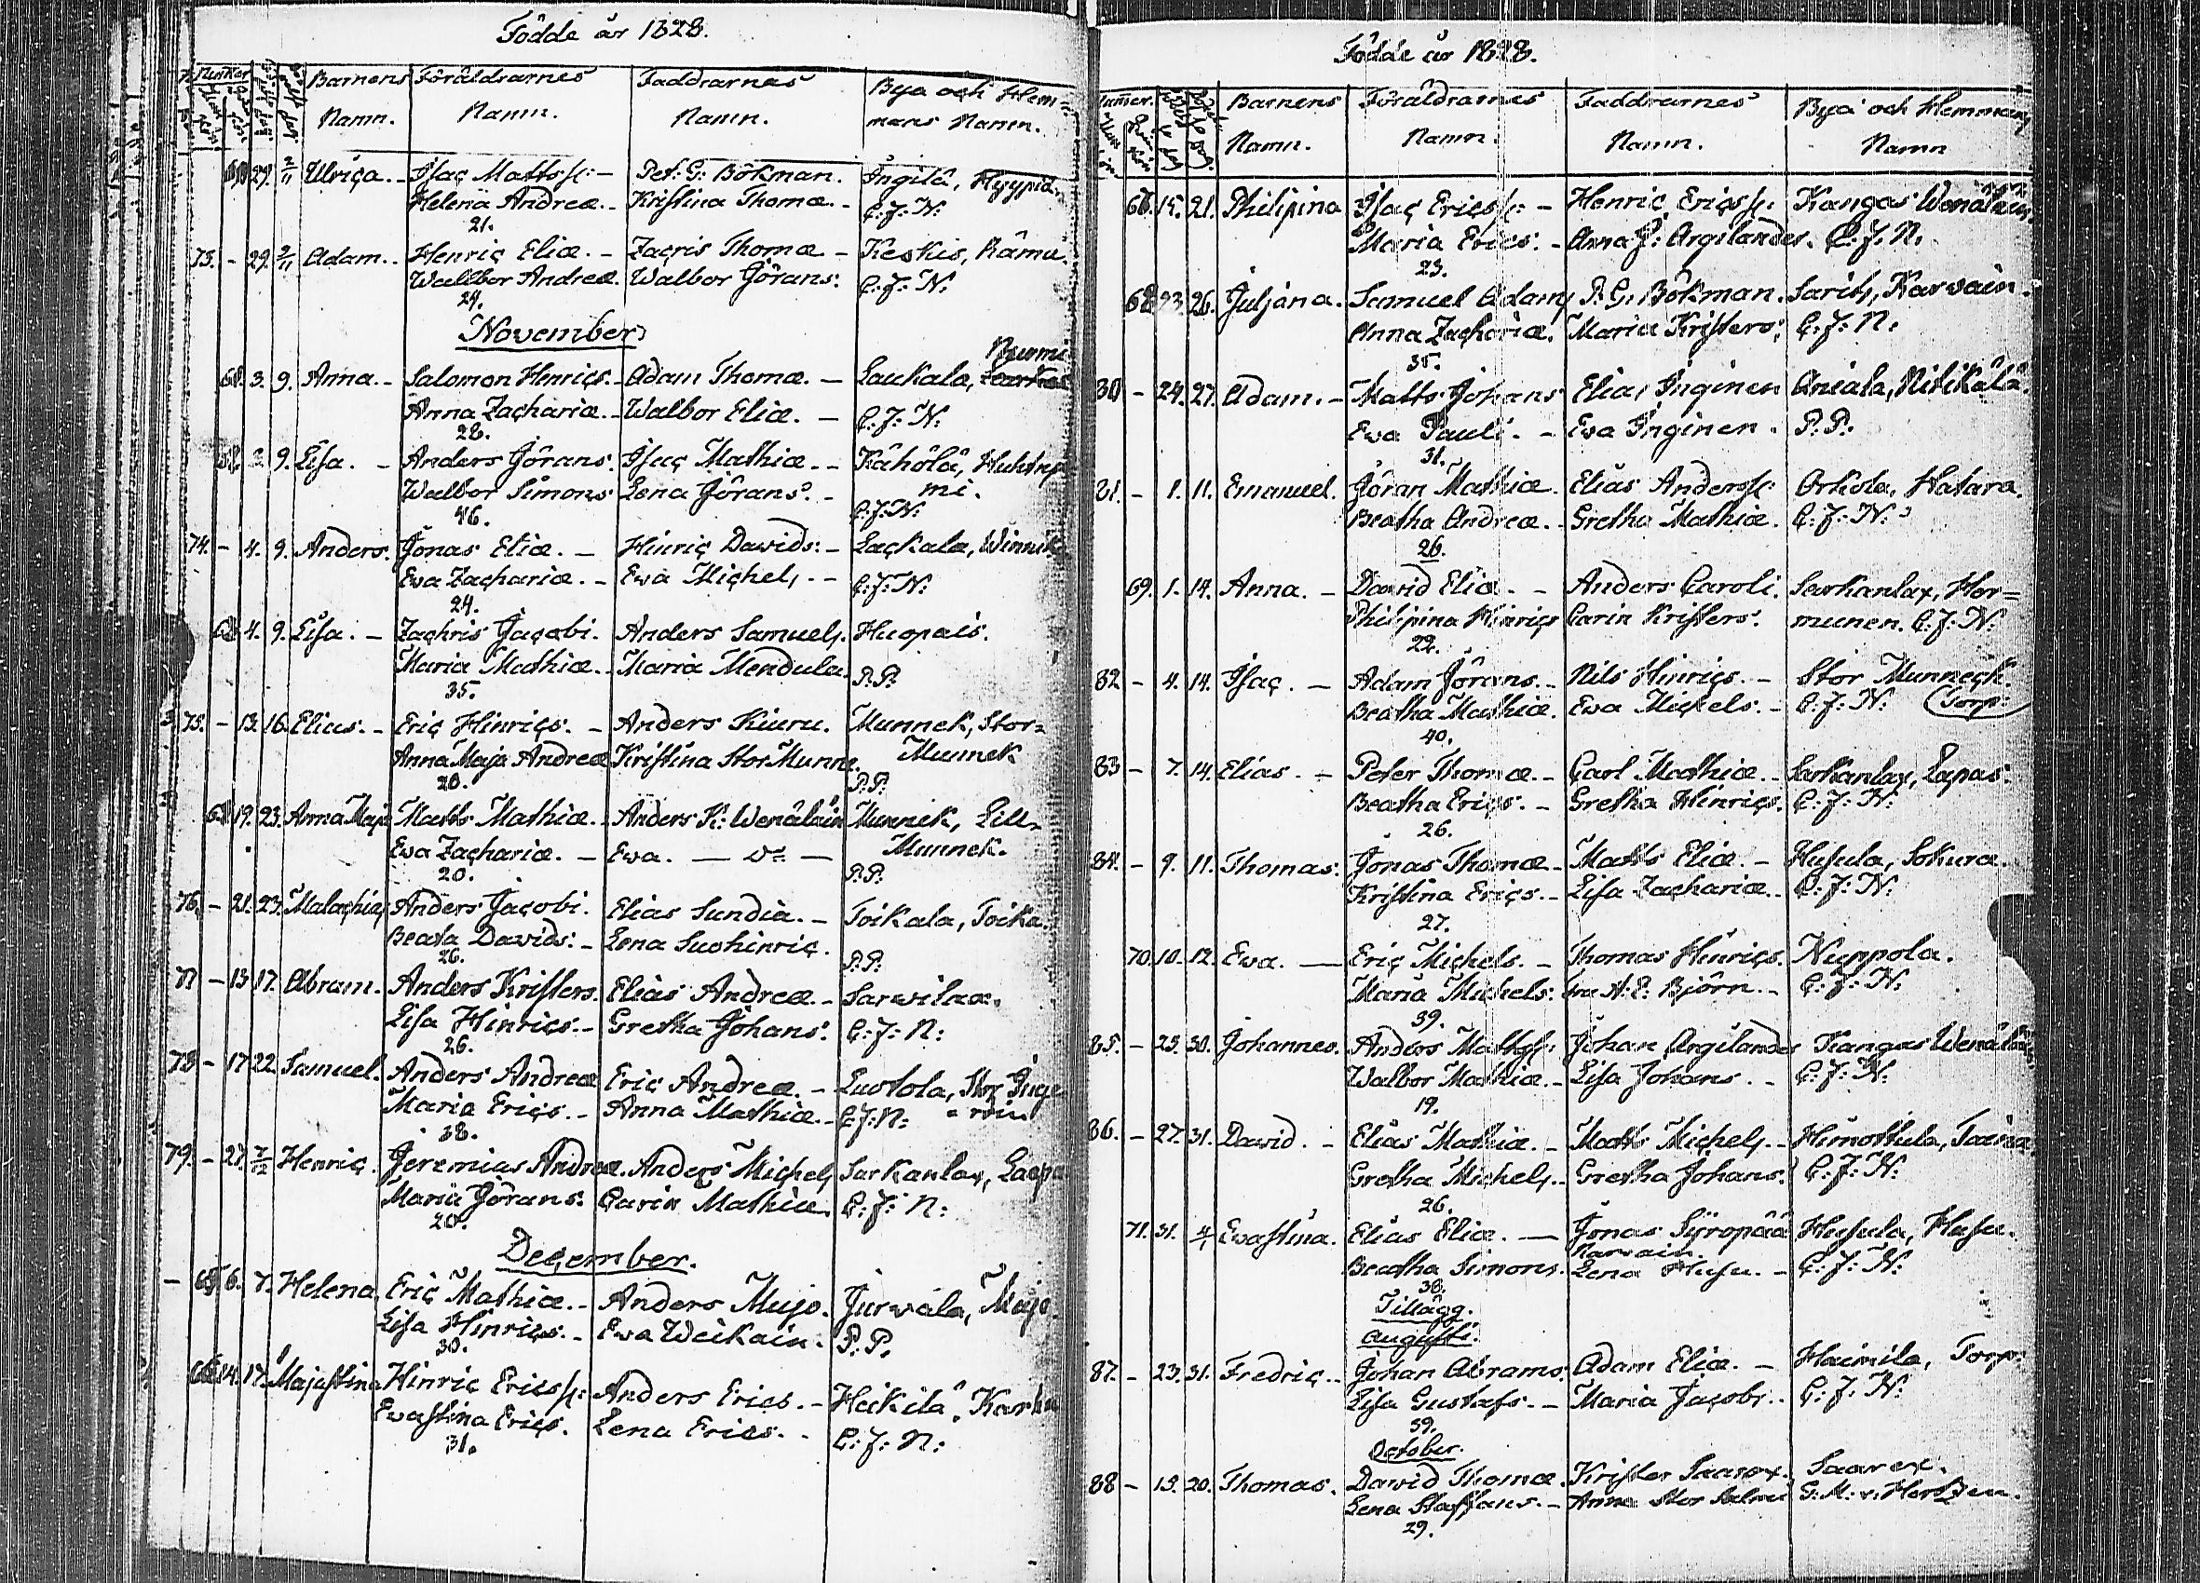 Födde år 1828.
Barnens Namn. Föräldrarnes Namn. Faddrarnes Namn. Bya och Hem=
mans Namn.
29. 2/11 Ulrica. - Isac Mattss: - Pet: G: Bökman. Ingilä, Hyypiä.
Helena Andreæ. - Kristina Thomæ. - C: J: N:
21.
73. - 29. 2/11 Adam. - Henric Eliæ. - Zacris Thomæ - Keskis, Rämä.
Wallbor Andreæ. Walbor Görans: C: J: N:
24.
November
3. 9. Anna. - Salomon Henrics. - Adam Thomæ. - Laukala, Nurmi
Anna Zachariæ. - Walbor Eliæ. - C: J: N:
28.
9. Lisa. - Anders Görans. Isac Mathiæ. - Kähölä, Huhtnie
Walbor Simons Lena Görans. - mi.
46. C: J: N:
74. - 4. 9. Anders. Jonas Eliæ. - Hinric Davids: - Lackala, Winnik
Ewa Zachariæ. - Ewa Michels. - C: J: N:
24.
4. 9. Lisa. - Zachris Jacobi. Anders Samuels. Huopais.
Maria Mathiæ. - Maria Mendula. P. P.
35.
75. - 13. 16. Elias. - Eric Hinrics. - Anders Kiuru. Munnek, Stor=
Anna Maja Andreæ Kristina Stor Munne. Munnek
20. P. P.
19. 23. Anna Maja Matts Mathiæ. - Anders K: Wenäläin Munnek, Lill=
Ewa Zachariæ. - Ewa. - D:o - Munnek.
20. P. P.
76. - 21. 23. Malachias Anders Jacobi. Elias Sundia. - Toikala, Toika.
Beata Davids: - Lena Suohinric. P. P.
26.
77 - 13 17. Abram. Anders Kristers. Elias Andreæ. - Sarvilax.
Lisa Hinrics. - Gretha Johans: C: J: N:
26.
78 - 17 22. Samuel. Anders Andreæ Eric Andreæ. - Eustola, Stor Inge
Maria Erics. - Anna Mathiæ. - C: J: N: =roin
38.
79. - 27. 7/12 Henric. Jeremias Andreæ. Anders Michels Sarkanlax, Laapa
Maria Görans. Carin Mathiæ. C: J: N:
20.
December.
- 6. 7. Helena Eric Mathiæ. - Anders Mujo. Jurvala, Mujo.
Lisa Hinrics. - Ewa Weikain. P. P.
30.
14. 17. Majastina Hinric Ericss: Anders Erics. - Heikilä, Karhu
Ewastina Erics. Lena Erics. - C: J: N:
31.
Födde år 1828.
Barnens Namn. Föräldrarnes Namn. Faddrarnes Namn. Bya och Hemmans
Namn
15. 21. Philipina Isac Ericss: - Henric Ericss: Kangas Wenäläin,
Maria Erics. - Anna J: Argilander. C. J. N.
23.
23. 26. Juljana. Samuel Adams P. G. Bökman. Sarits, Karvain.
Anna Zachariæ. Maria Kristers. C. J. N.
35.
80 - 24. 27. Adam. - Matts Johans Elias Inginen Aniala, Nitikälä.
Ewa Pauli. - Ewa Inginen. P. P.
31.
81. - 1. 11. Emanuel. Göran Mathiæ. Elias Anderss: Orkola, Hatara.
Beatha Andreæ. - Gretha Mathiæ. C: J: N:
26.
69. 1. 14. Anna. - David Eliæ. - Anders Caroli. Sarkanlax, Hor=
Philipina Hinrics Carin Kristers. munen. C: J: N:
22.
82 - 4. 14. Isac. - Adam Görans. - Nils Hinrics. - Stor Munneck.
Beatha Mathiæ. Ewa Michels. - C: J: N: (Torp:
40.
83 - 7. 14. Elias. - Peter Thomæ. - Carl Mathiæ. - Sarkanlax, Lapas.
Beatha Erics. - Gretha Hinrics. C: J: N:
26.
84. - 9. 11. Thomas. Jonas Thomæ. - Matts Eliæ. - Husula, Sokura.
Kristina Erics. - Lisa Zachariæ. - C: J: N:
27.
70. 10. 12. Ewa. - Eric Michels. - Thomas Hinrics. Nuppola.
Maria Michels: Fru H. E: Björn. - C: J: N:
39.
85. - 23. 30. Johannes. Anders Mattss: Johan Argilander Kangas Wenäläin
Walbor Mathiæ. - Lisa Johans. - C: J: N:
19.
86. - 27. 31. David. - Elias Mathiæ. - Matts Michels. - Himottula, Taina
Gretha Michels. - Gretha Johans. C: J: N:
26.
71. 31. 4/1 Ewastina. Elias Eliæ. - Jonas Syropää Husula, Husu.
Narvain.
Beatha Simons. Lena Husu. - C: J: N:
38.
Tillägg.
Augusti.
87. - 23. 31. Fredric. - Johan Abrams. Adam Eliæ. - Haimila, Torp:
Lisa Gustafs. - Maria Jacobs. - C: J: N:
39.
October.
88 - 13. 20. Thomas. David Thomæ. Krister Saarex. Saarex.
Lena Staffans. - Anna Stor Salmi G: M: v: Hertzen.
29.